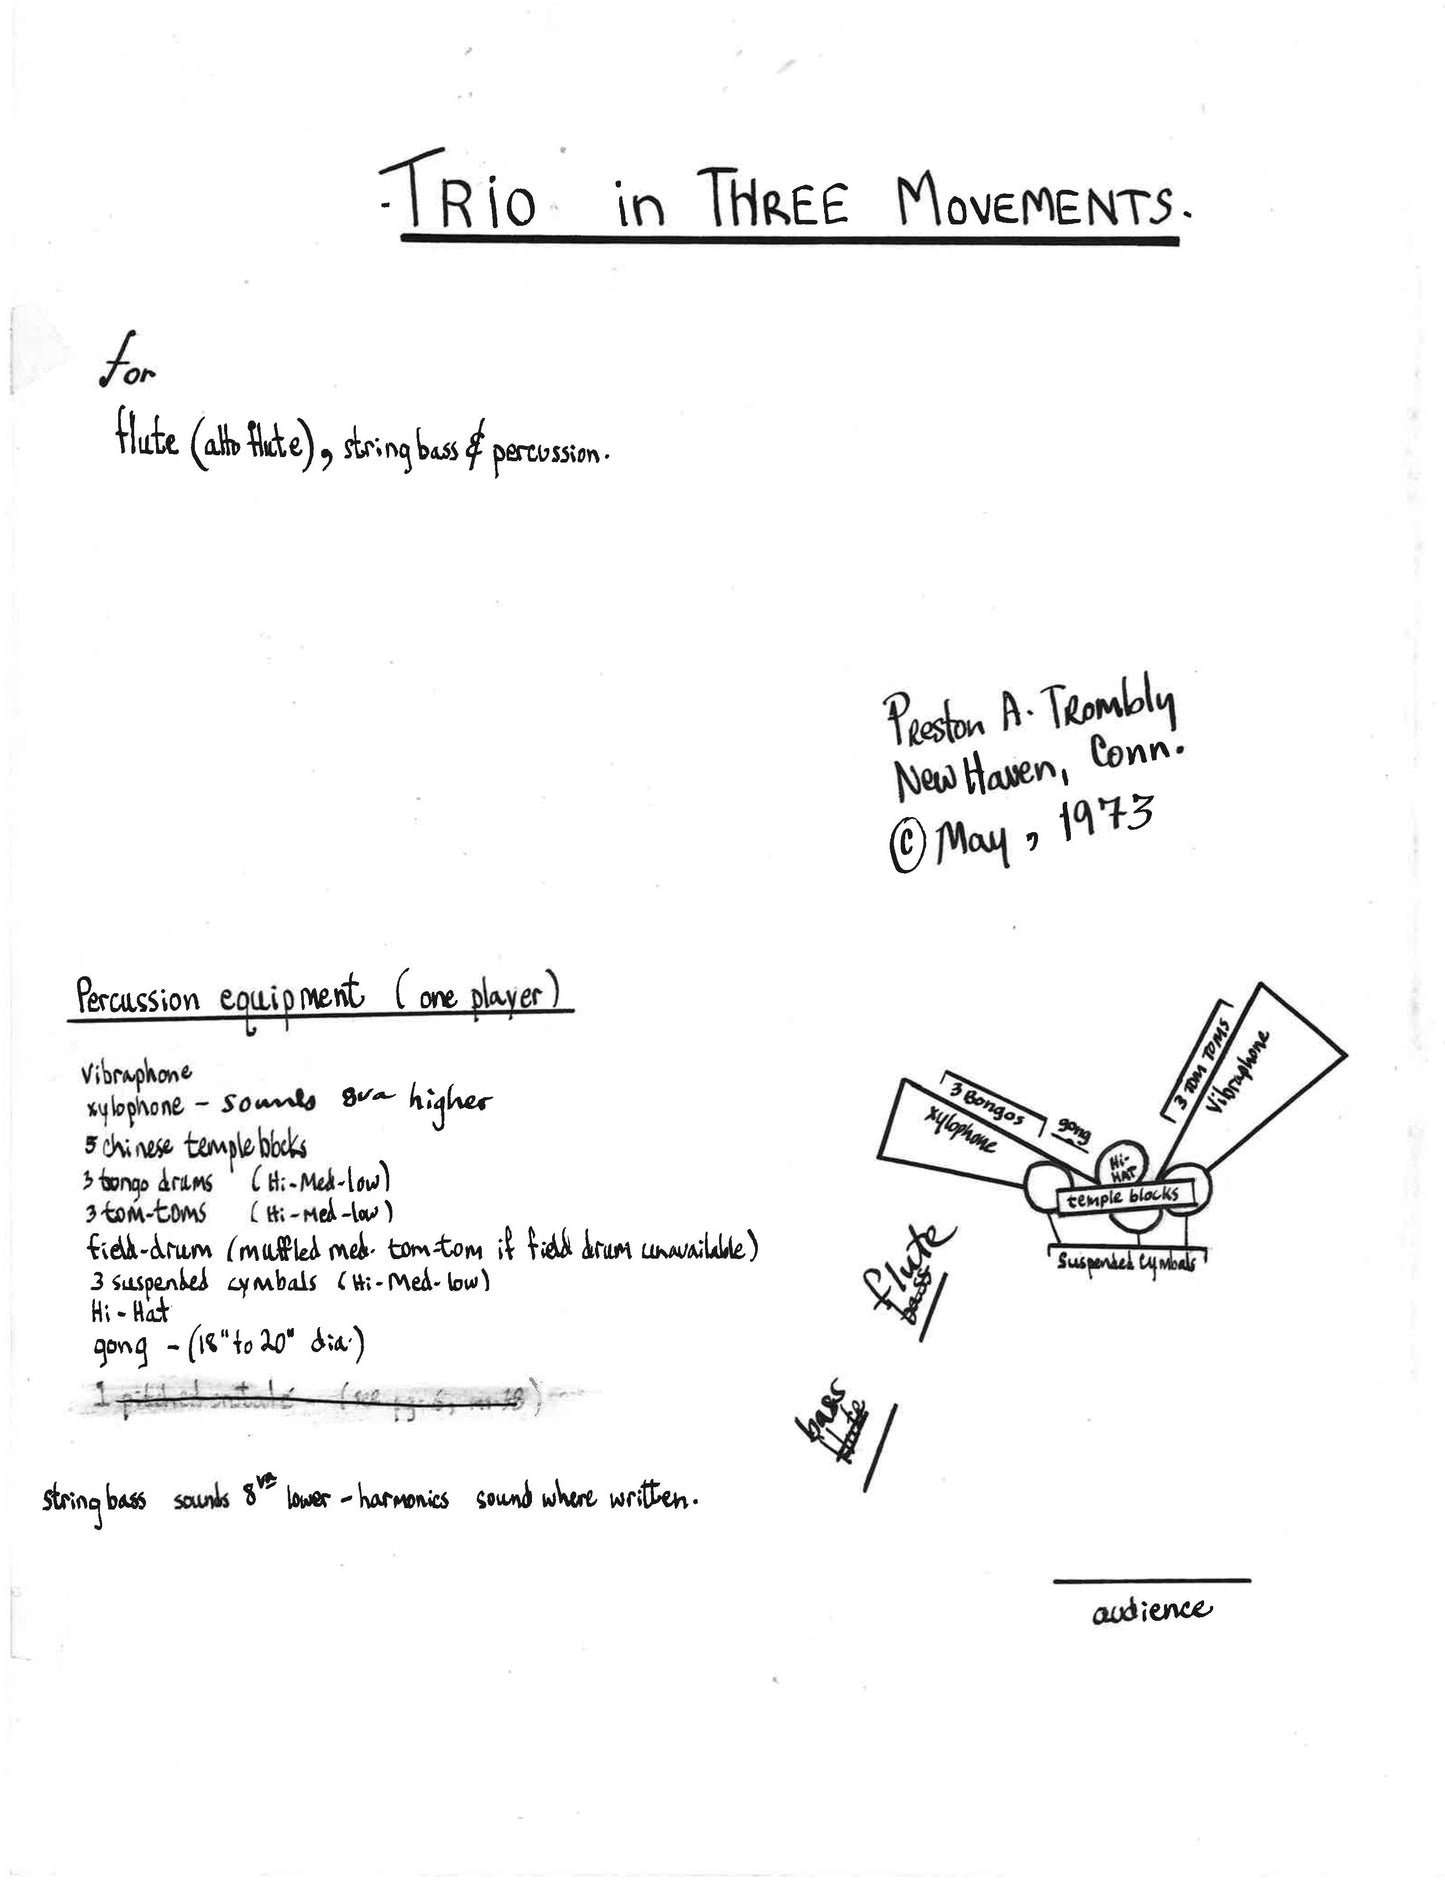 -TRio in THREE MOVEMENTS.
for
flute (alto flute), string bass & percussion.
Preston A. Trombly
New Haven, Conn.
© May, 1973
Percussion equipment (one player)
Vibraphone
xylophone - sounds 8va higher
5 chinese temple blocks
3 bongo drums (Hi-Med-low)
3 tom-toms (Hi-Med-low)
field-drum (muffled med. tom-tom if field drum unavailable)
3 suspended cymbals (Hi-Med-low)
Hi-Hat
gong - (18" to 20" dia.)
1 pitched (see pg. 6,
string bass sounds 8va lower - harmonics sound where written.
3 TOM TOMS
Vibraphone
3 Bongos
xylophone
gong
Hi-
HAT
temple blocks
Suspended Cymbals
flute
bass
bass
flute
audience